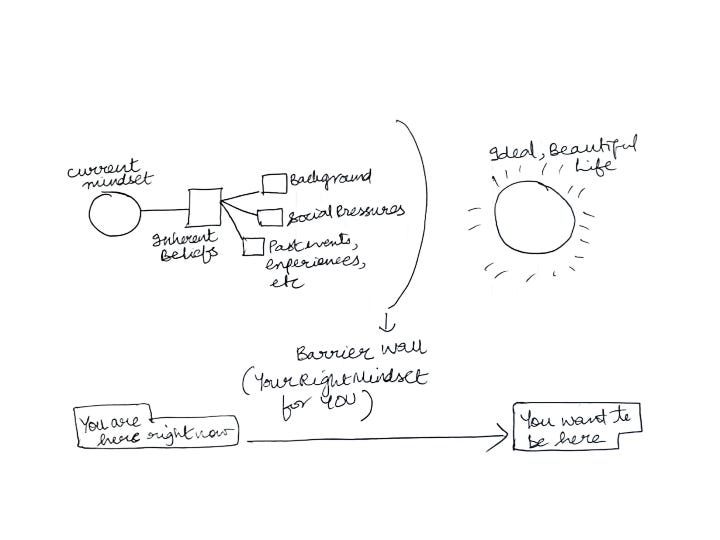 current
mindset
Inherent
Beliefs
Background
Social Pressures
Past events,
experiences,
etc
Ideal, Beautiful
Life
Barrier Wall
(Your Right Mindset
for YOU)
You are
here right now
You want to
be here